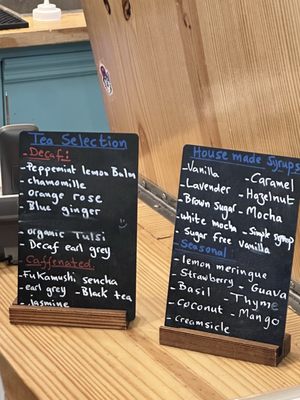 Tea Selection
- Decaf:
- Peppemint lemon Balm
- chamomille
- orange rose
- Blue ginger
- organic Tulsi
- Decaf earl grey
- Caffenated:
- Fukamushi sencha
- earl grey - Black tea
- Jasmine
House made Syrups
- Vanilla - Caramel
- Lavender - Hazelnut
- Brown Sugar - Mocha
- white mocha - Simple syrup
- Sugar Free Vanilla
- Seasonal
- lemon meringue
- Strawberry - Guava
- Basil - Thyme
- Coconut - Mango
- creamsicle